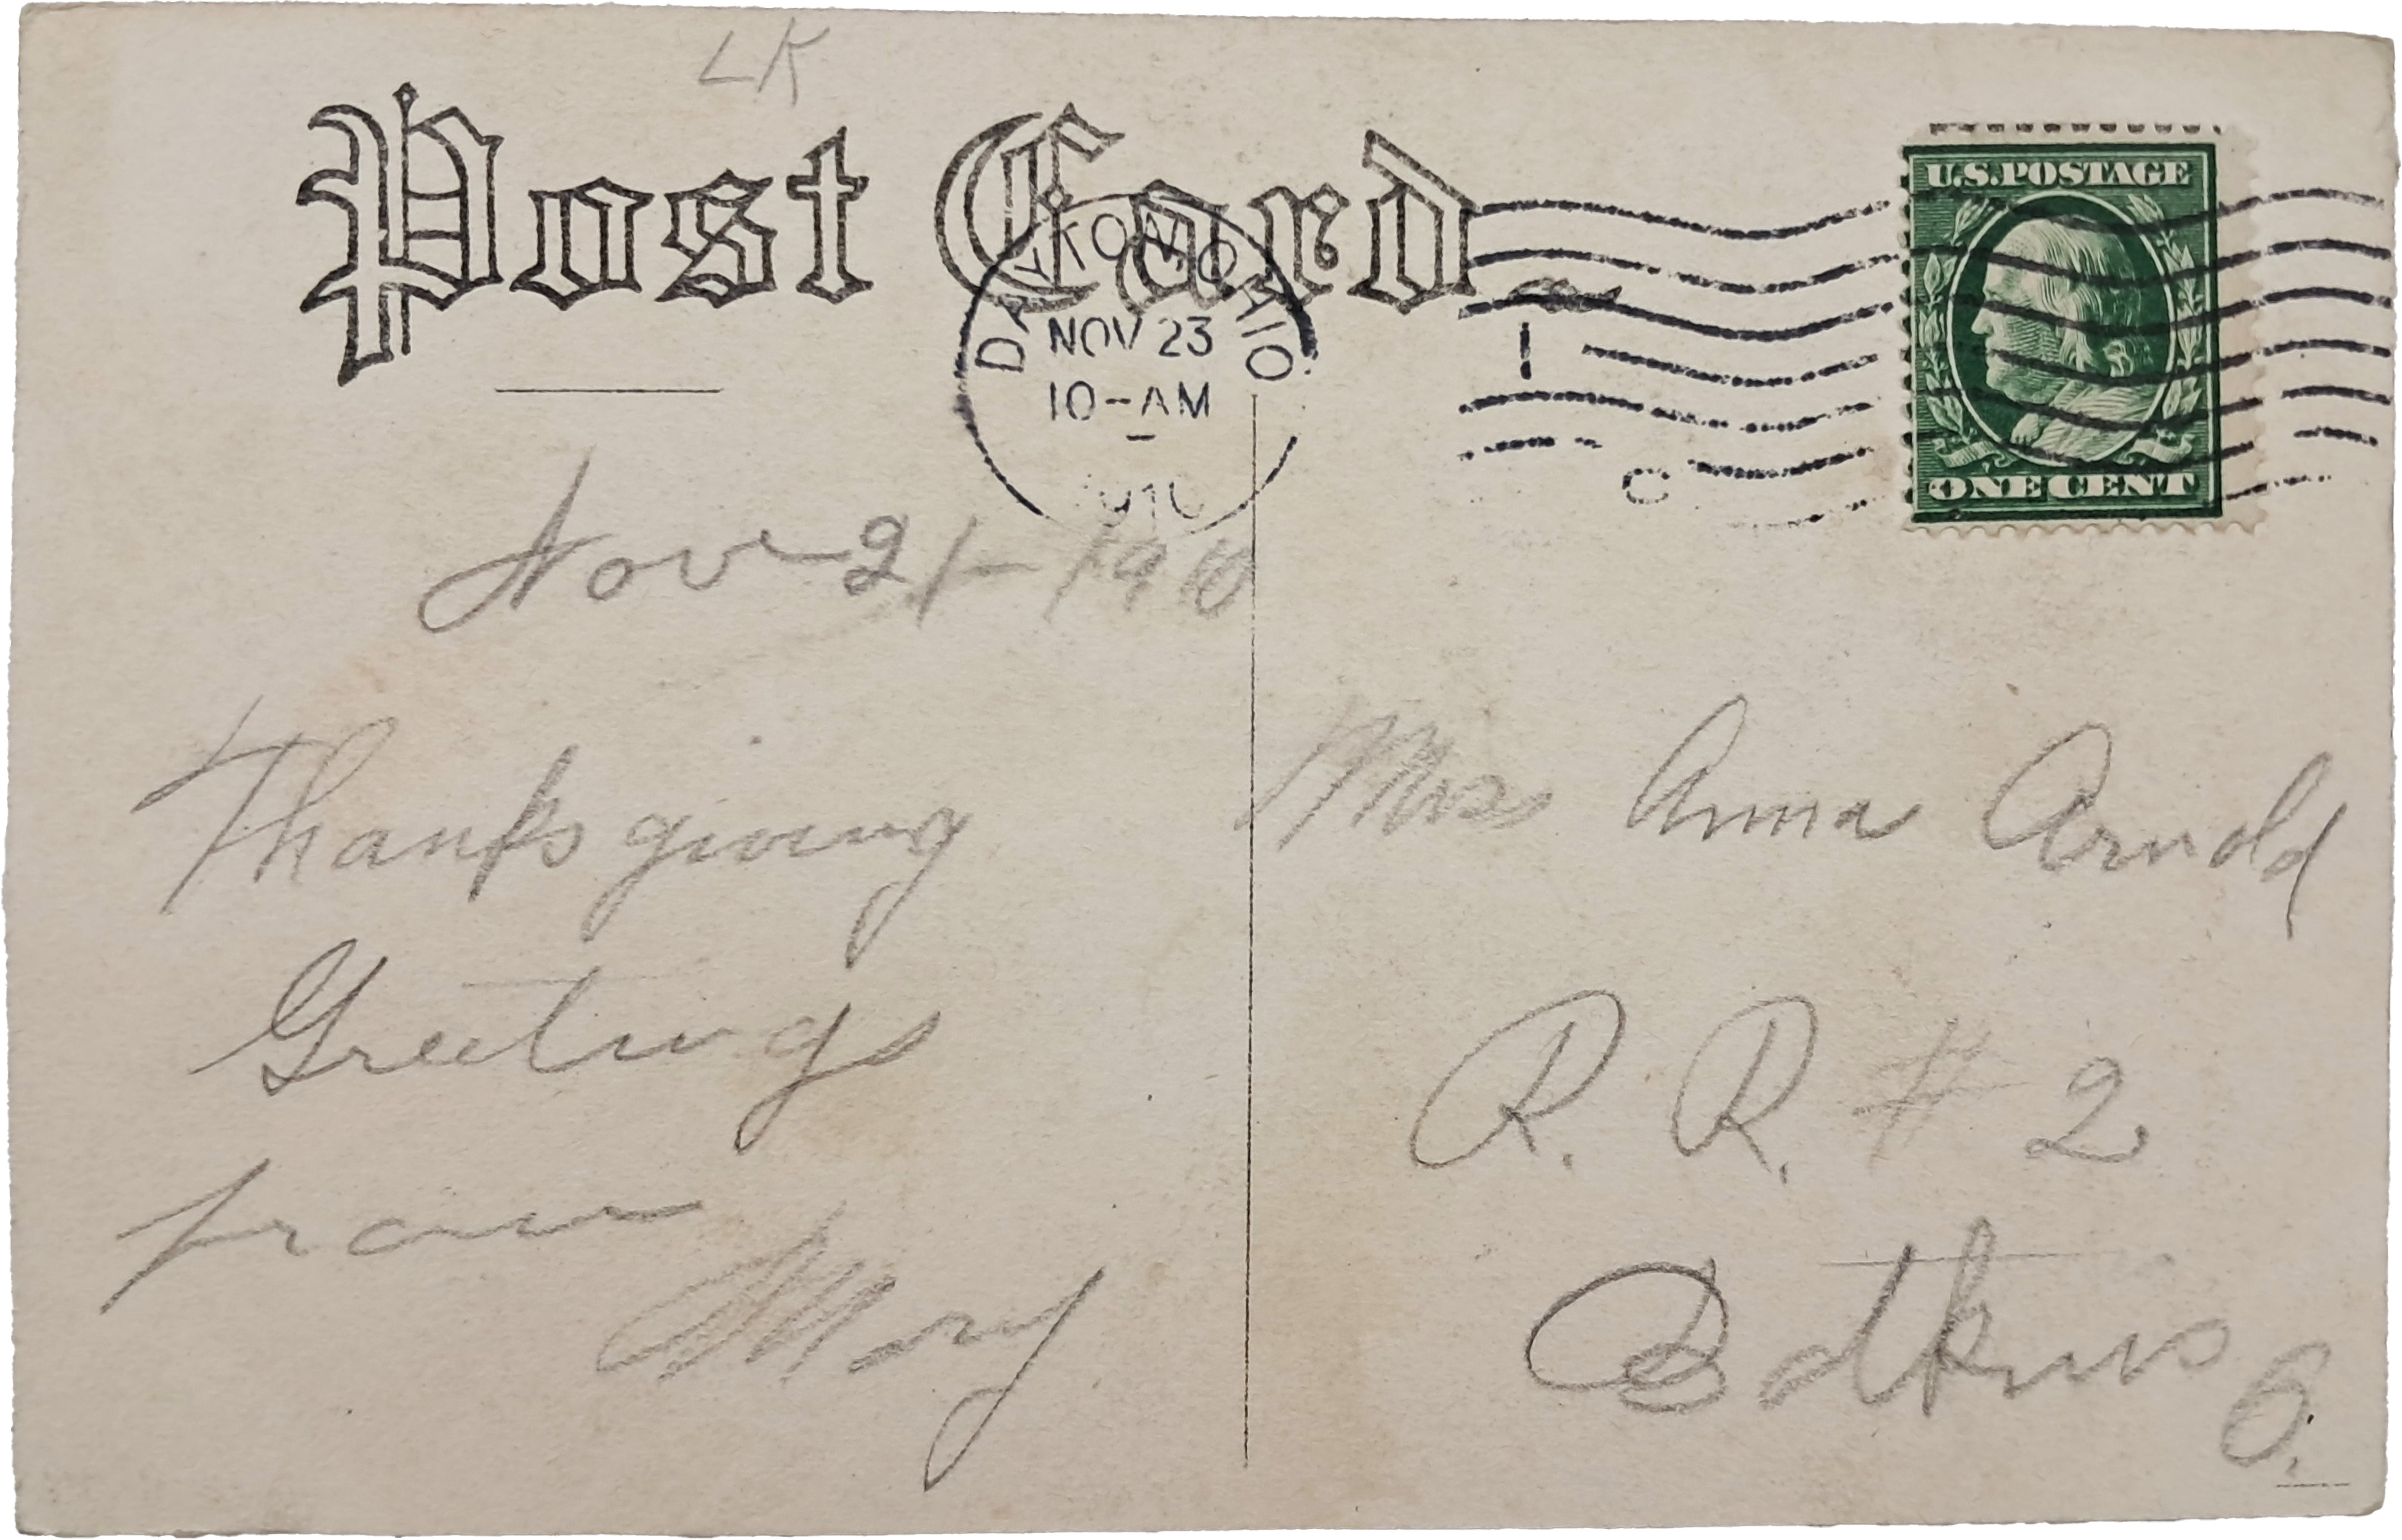 LK
Post Card
NOV 23
10-AM
1910
U.S. POSTAGE
ONE CENT
Nov 21-1910
Thanksgiving
Greetings
from
Mary
Miss Anna Arnold
R. R. # 2
Botkins
O.